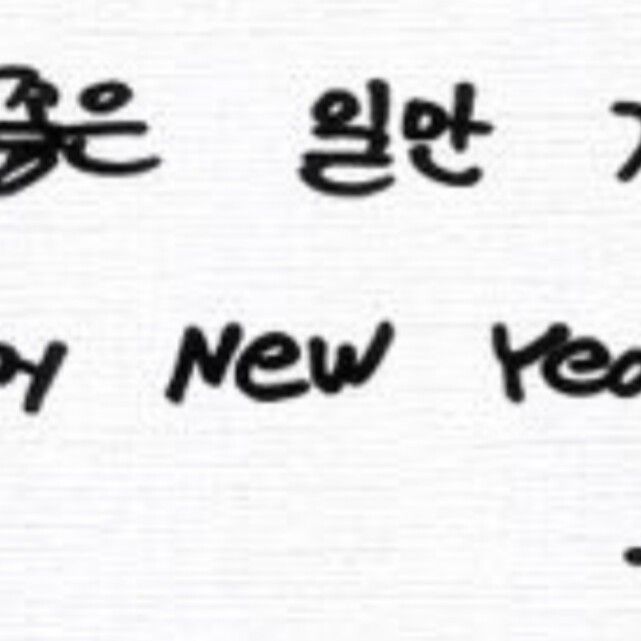 좋은 일만
py New Yea